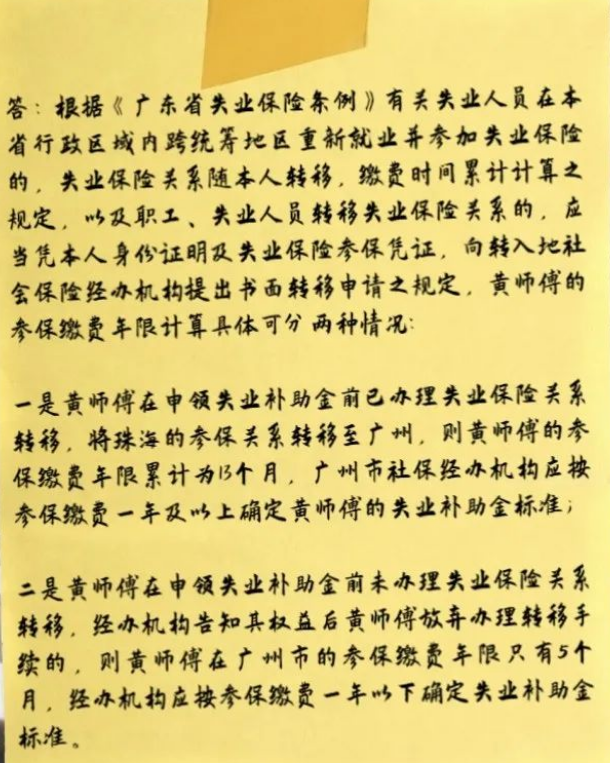 答：根据《广东省失业保险条例》有关失业人员在本
省行政区域内跨统筹地区重新就业并参加失业保险
的，失业保险关系随本人转移，缴费时间累计计算之
规定，以及职工、失业人员转移失业保险关系的，应
当凭本人身份证明及失业保险参保凭证，向转入地社
会保险经办机构提出书面转移申请之规定，黄师傅的
参保缴费年限计算具体可分两种情况：
一是黄师傅在申领失业补助金前已办理失业保险关系
转移，将珠海的参保关系转移至广州，则黄师傅的参
保缴费年限累计为13个月，广州市社保经办机构应按
参保缴费一年及以上确定黄师傅的失业补助金标准；
二是黄师傅在申领失业补助金前未办理失业保险关系
转移，经办机构告知其权益后黄师傅放弃办理转移手
续的，则黄师傅在广州市的参保缴费年限只有5个
月，经办机构应按参保缴费一年以下确定失业补助金
标准。